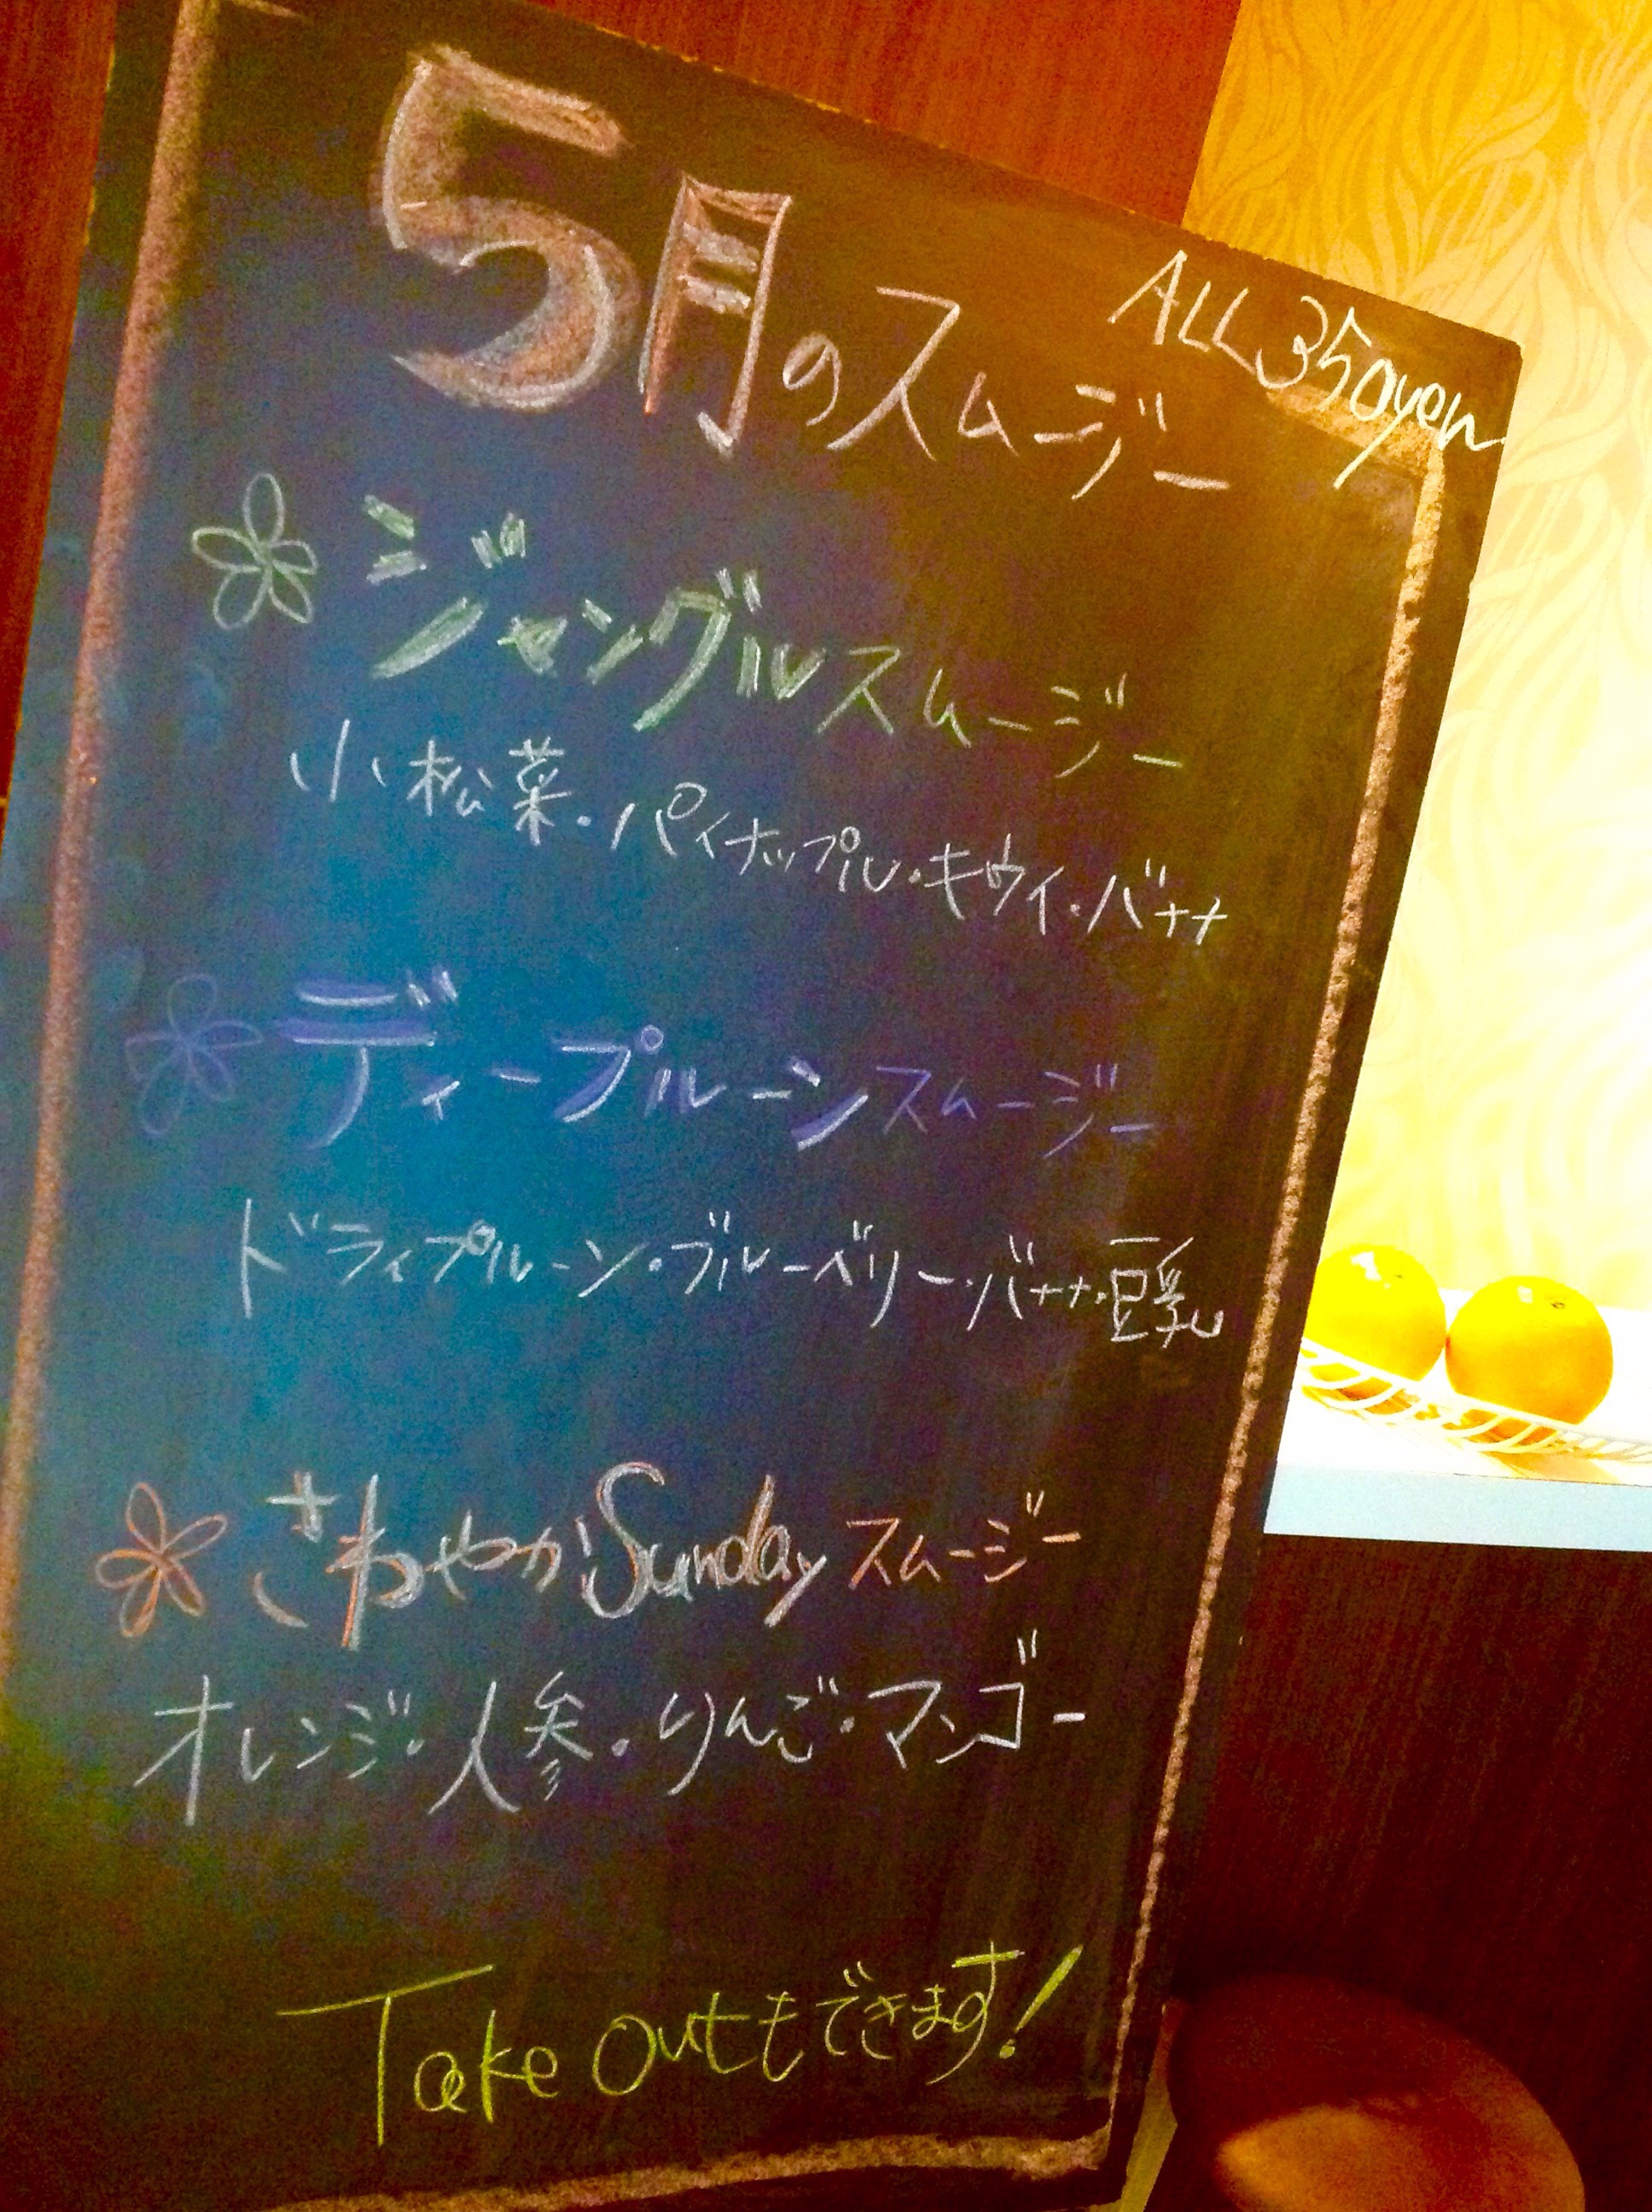 5月のスムージー
ALL 350yen
ジャングルスムージー
小松菜・パイナップル・キウイ・バナナ
ディープルーンスムージー
ドライプルーン・ブルーベリー・バナナ・豆乳
さわやかSundayスムージー
オレンジ・人参・りんご・マンゴー
Take outもできます!